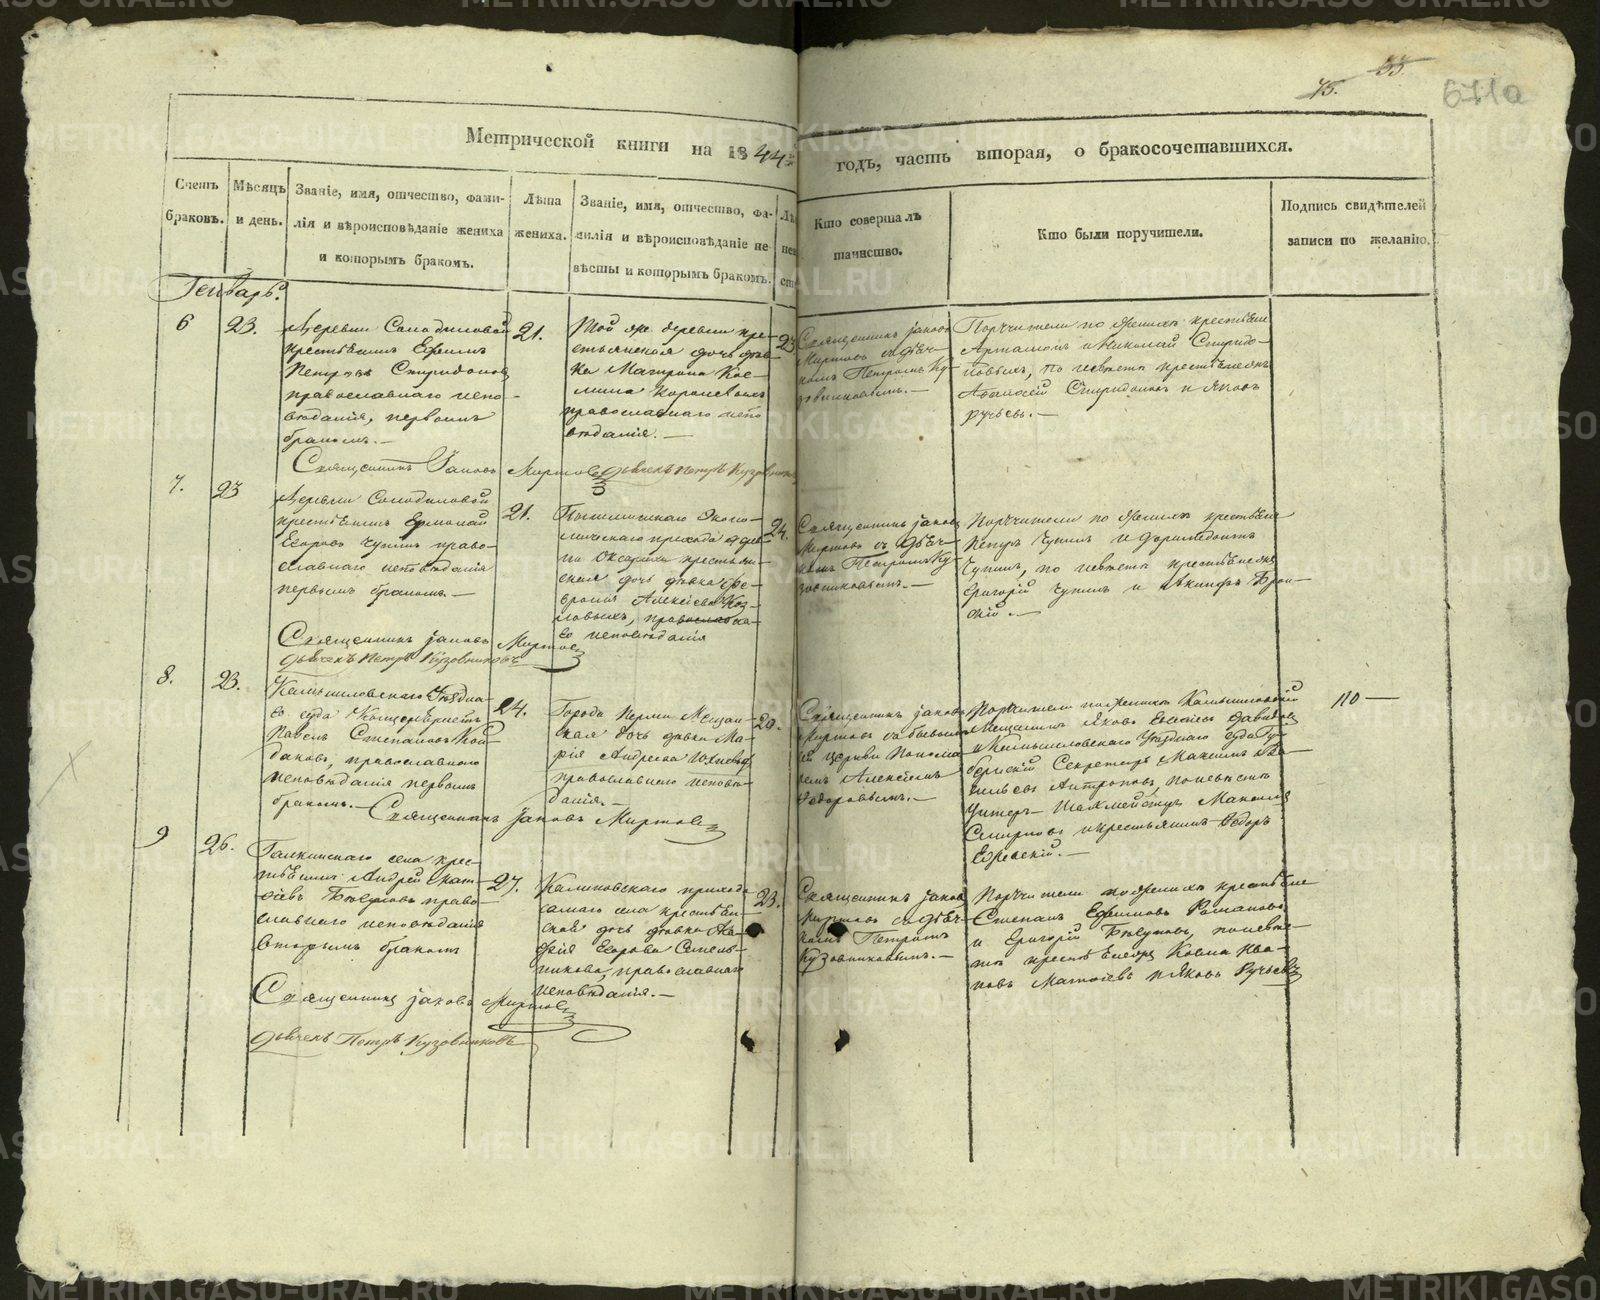 75.
33.
671а
Метрической книги на 1844й
годъ, часть вторая, о бракосочетавшихся.
Счетъ
браковъ.
Мѣсяцъ
и день.
Званіе, имя, отчество, фами-
лія и вѣроисповѣданіе жениха
и которымъ бракомъ.
Лѣта
жениха.
Званіе, имя, отчество, фа-
милія и вѣроисповѣданіе не-
вѣсты и которымъ бракомъ.
Кто совершалъ
таинство.
Кто были поручители.
Подпись свидѣтелей
записи по желанію.
Генварь.
6
23.
Деревни Солодиловой
крестьянинъ Ефимъ
Петровъ Спиридоновъ
православнаго испо-
вѣданія, первымъ
бракомъ.
21.
Той же деревни кре-
стьянская дочь дѣв-
ка Матрона Кос-
мина
православнаго испо
вѣданія.
23
Священникъ Іаковъ
Миртовъ съ дьяч-
комъ Петромъ Ку-
зовниковымъ.
Поручители по женихѣ крестьяне
Артамонъ и Николай Спиридо-
новыхъ, по невѣстѣ крестьяне
Аѳанасій Спиридоновъ и Яковъ
Ручьевъ.
Священникъ Іаковъ Миртовъ дьячекъ Петръ Кузовников
7.
23
Деревни Солодиловой
крестьянинъ Ермолай
Егоровъ Чупинъ право-
славнаго исповѣданія
первымъ бракомъ.
21.
прихода дерев
ни крестьян-
ская дочь дѣвка Фе-
Алексѣева Коз-
ловыхъ, православна-
го исповѣданія
24.
Священникъ Іаковъ
Миртовъ съ дьяч-
комъ Петромъ Ку-
зовниковымъ.
Поручители по женихѣ крестьяне
Петръ Чупинъ и Доримедонтъ
Чупинъ, по невѣстѣ крестьяне
Григорій Чупинъ и Акинфъ
Священникъ Іаковъ Миртовъ
дьячекъ Петръ Кузовниковъ
8.
23.
Камышловскаго Уѣздна-
го суда Канцеляристъ
Павелъ Степановъ Кой-
дановъ, православнаго
исповѣданія первымъ
бракомъ.
24.
Города Перми Мещан-
ская дочь дѣвка Ма-
рія Андреева
православнаго исповѣ-
данія.
20.
Священникъ Іаковъ
Миртовъ съ бывшимъ
церкви Понома-
ремъ Алексѣемъ
Ѳедоровымъ.
Поручители по женихѣ Камышловскій
Мещанинъ Яковъ Давидовъ
и Камышловскаго Уѣзднаго суда Гу-
бернскій Секретарь Максимъ Ва-
сильевъ Антроповъ, по невѣстѣ
Унтеръ-Шахмейстеръ Максимъ
Смирновъ и крестьянинъ Ѳедоръ
по
Священникъ Іаковъ Миртовъ
9
26.
Галкинскаго села крес-
тьянинъ Андрей Мат-
ѳеевъ Бѣлоусовъ право-
славнаго исповѣданія
вторымъ бракомъ
27.
Калиновскаго прихода
самаго села крестьян-
ская дочь дѣвка
Егорова Сте
никова, православнаго
исповѣданія.
23.
Священникъ Іаковъ
Миртовъ съ дьяч-
комъ Петромъ
Кузовниковымъ.
Поручители по женихѣ крестьяне
Степанъ Ефимовъ Романовъ
и Григорій Бѣлоусовъ, по невѣс-
тѣ крестьяне Козма Ива-
новъ Матвѣевъ и Яковъ Ручьевъ
Священникъ Іаковъ Миртовъ
дьячекъ Петръ Кузовниковъ